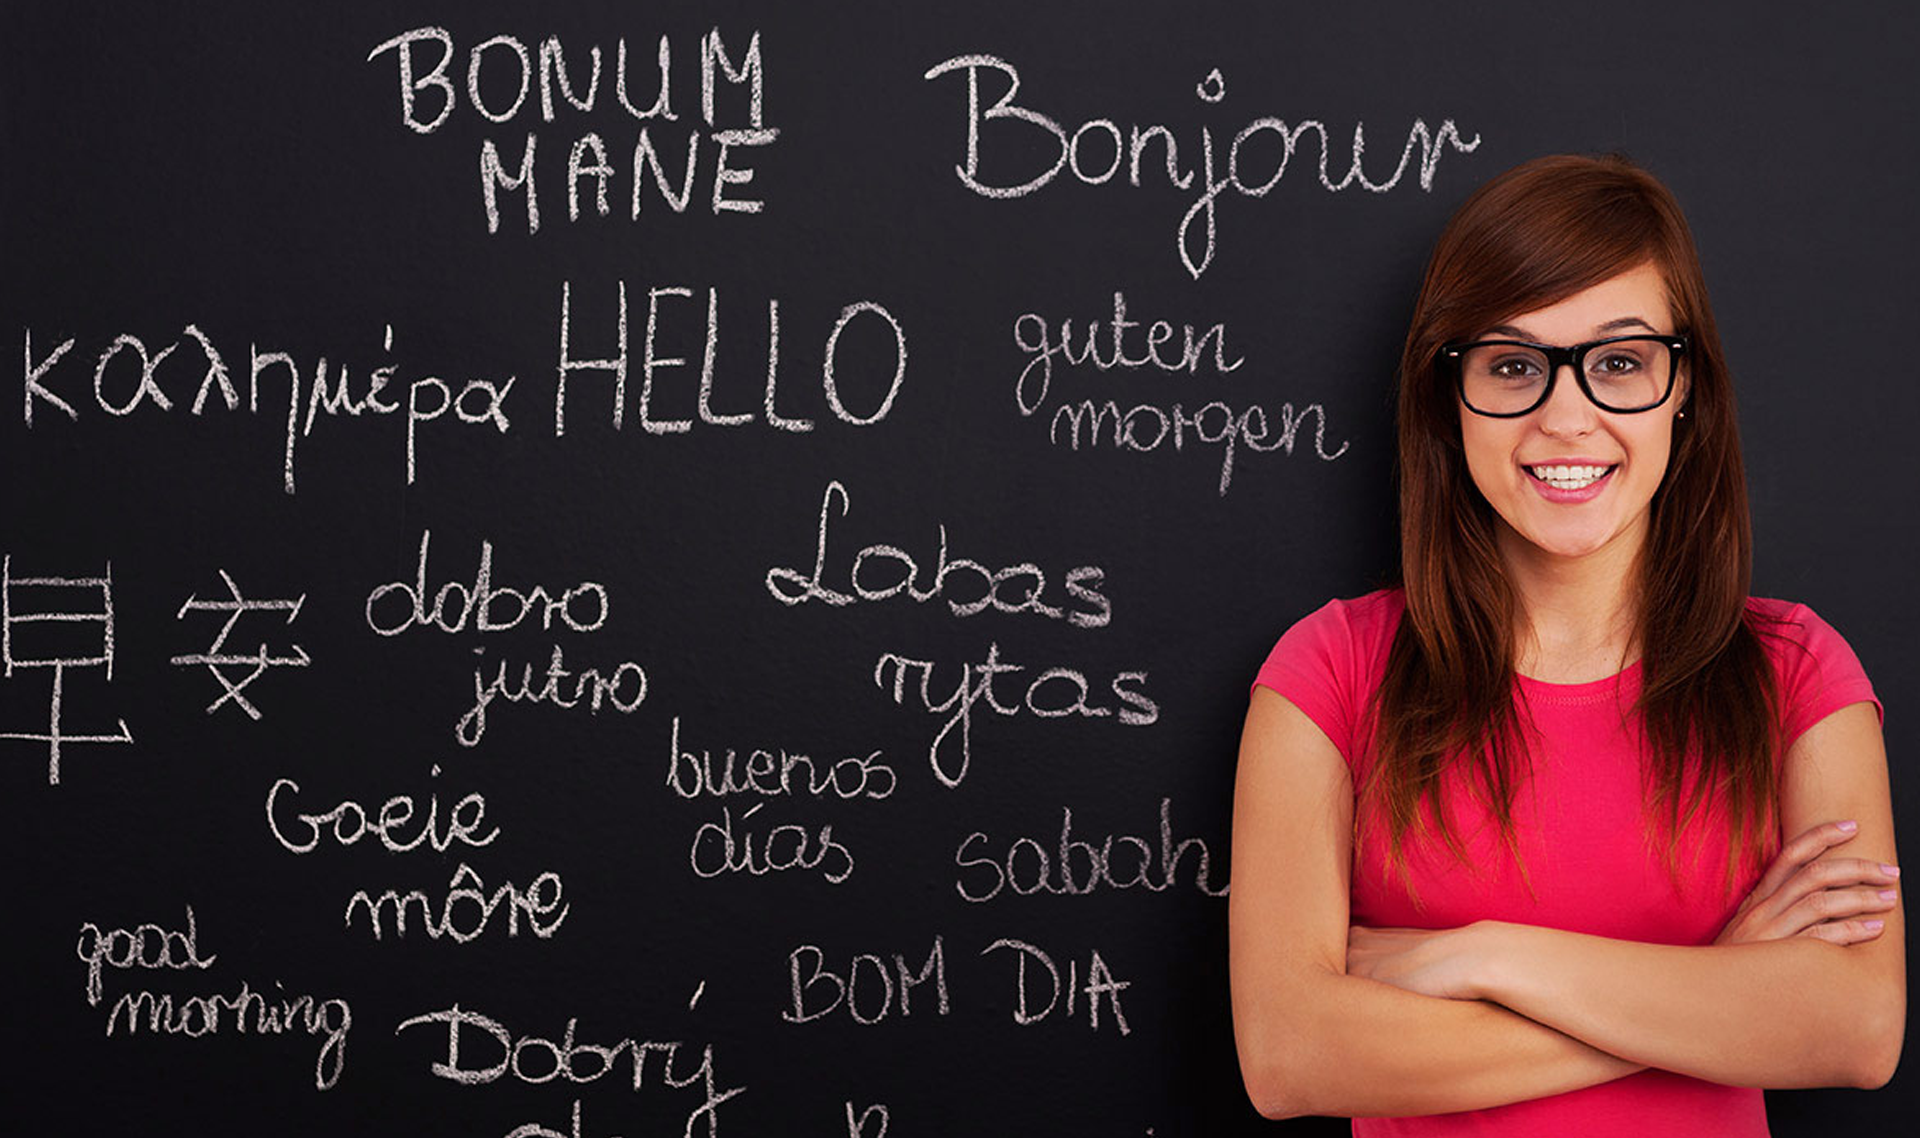 BONUM
MANE
Bonjour
καλημέρα
HELLO
guten
morgen
早安
dobro
jutro
Labas
rytas
buenos
días
Goeie
môre
sabah
good
morning
BOM DIA
Dobrý